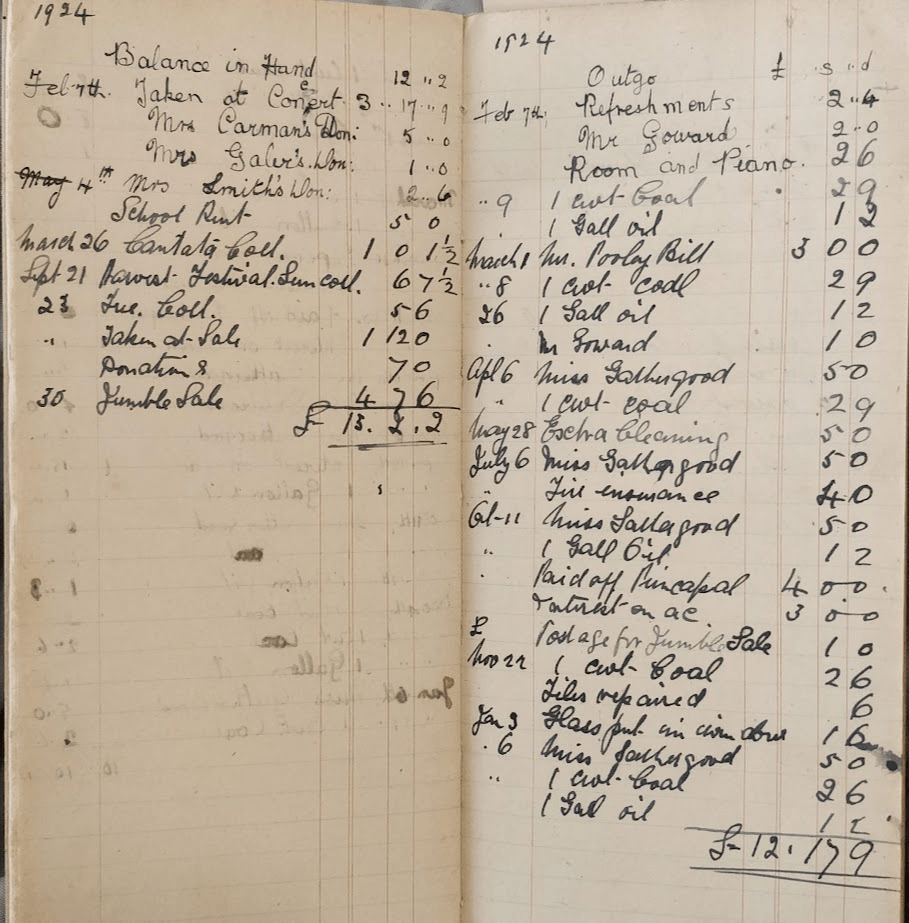 1924
Balance in Hand 12 .. 2
Feb 7th. Taken at Concert 3 .. 17 .. 9
Mrs Carman's Don: 5 .. 0
Mrs Galer's. Don: 1 .. 0
May 4th Mrs Smith's Don: 2 .. 6
School Rent 5 0
March 26 Cantata Coll. 1 0 1½
Sept 21 Harvest Festival. Sun coll. 6 7½
23 Tue. Coll. 5 6
" Taken at Sale 1 12 0
Donations 7 0
30 Jumble Sale 4 7 6
£ 13. 2. 2
1924
Outgo £ s .. d
Feb 7th. Refreshments 2 .. 4
Mr Goward 2 .. 0
Room and Piano. 2 6
" 9 1 cwt Coal 2 9
1 Gall oil 1 2
March 1 Mr. Pooley Bill 3 0 0
" 8 1 cwt coal 2 9
26 1 Gall oil 1 2
Mr Goward 1 0
Apl 6 Miss Gathergood 5 0
" 1 cwt coal 2 9
May 28 Extra Cleaning 5 0
July 6 Miss Gathergood 5 0
" Fire ensurance 4 0
Oct 11 Miss Gathergood 5 0
" 1 Gall Oil 1 2
Paid off Princapal 4 0 0
Interest on ac 3 0 0
£ Postage for Jumble Sale 1 0
Nov 22 1 cwt Coal 2 6
Tiles repaired 6
Jan 3 Glass put in window 1 6
. 6 Miss Gathergood 5 0
" 1 cwt Coal 2 6
1 Gall oil 1 2
£ 12. 17 9